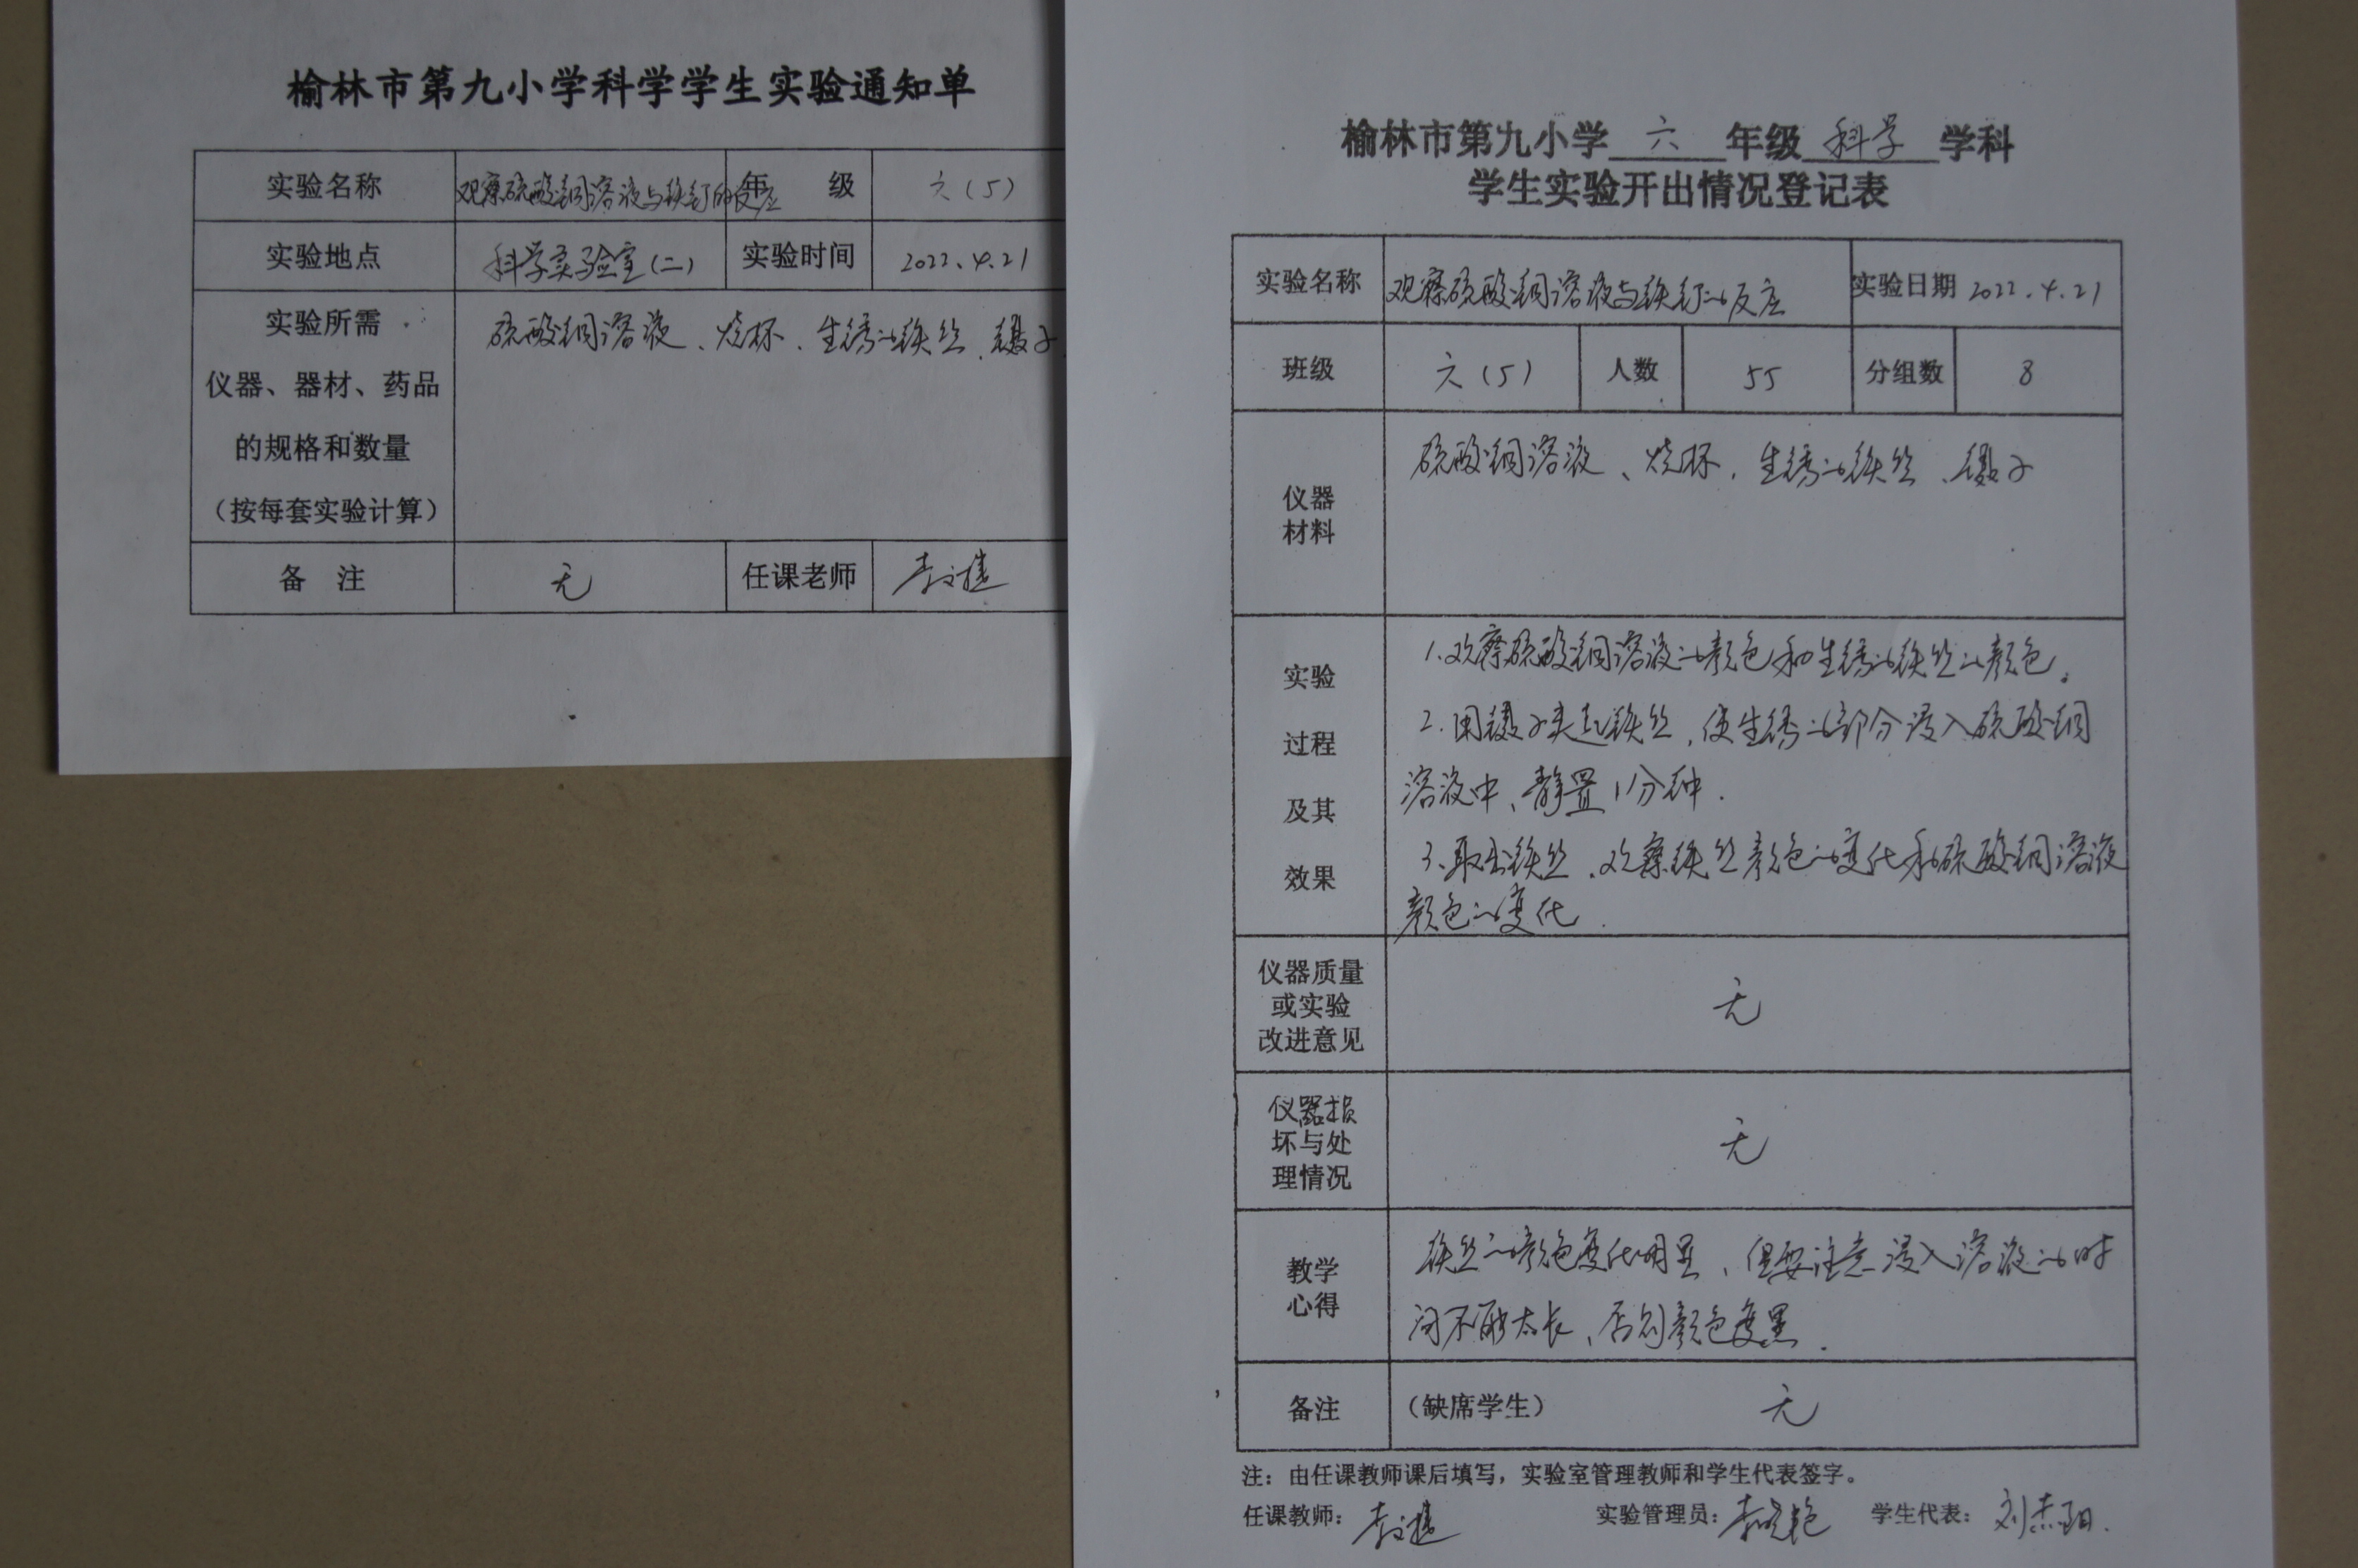 榆林市第九小学科学学生实验通知单
实验名称 观察硫酸铜溶液与铁钉的反应 年 级 六（5）
实验地点 科学实验室（二） 实验时间 2022.4.21
实验所需
仪器、器材、药品
的规格和数量
（按每套实验计算）
硫酸铜溶液、烧杯、生锈的铁丝、镊子
备 注 无 任课老师
榆林市第九小学 六 年级 科学 学科
学生实验开出情况登记表
实验名称 观察硫酸铜溶液与铁钉的反应 实验日期 2022.4.21
班级 六（5） 人数 55 分组数 8
仪器
材料
硫酸铜溶液、烧杯、生锈的铁丝、镊子
实验
过程
及其
效果
1.观察硫酸铜溶液的颜色和生锈的铁丝的颜色。
2.用镊子夹起铁丝，使生锈的部分浸入硫酸铜
溶液中、静置1分钟.
3、取出铁丝，观察铁丝颜色的变化和硫酸铜溶液
颜色的变化.
仪器质量
或实验
改进意见
无
仪器损
坏与处
理情况
无
教学
心得
铁丝的颜色变化明显，但要注意浸入溶液的时
间不能太长、否则颜色变黑.
备注 （缺席学生） 无
注：由任课教师课后填写，实验室管理教师和学生代表签字。
任课教师： 实验管理员： 学生代表：